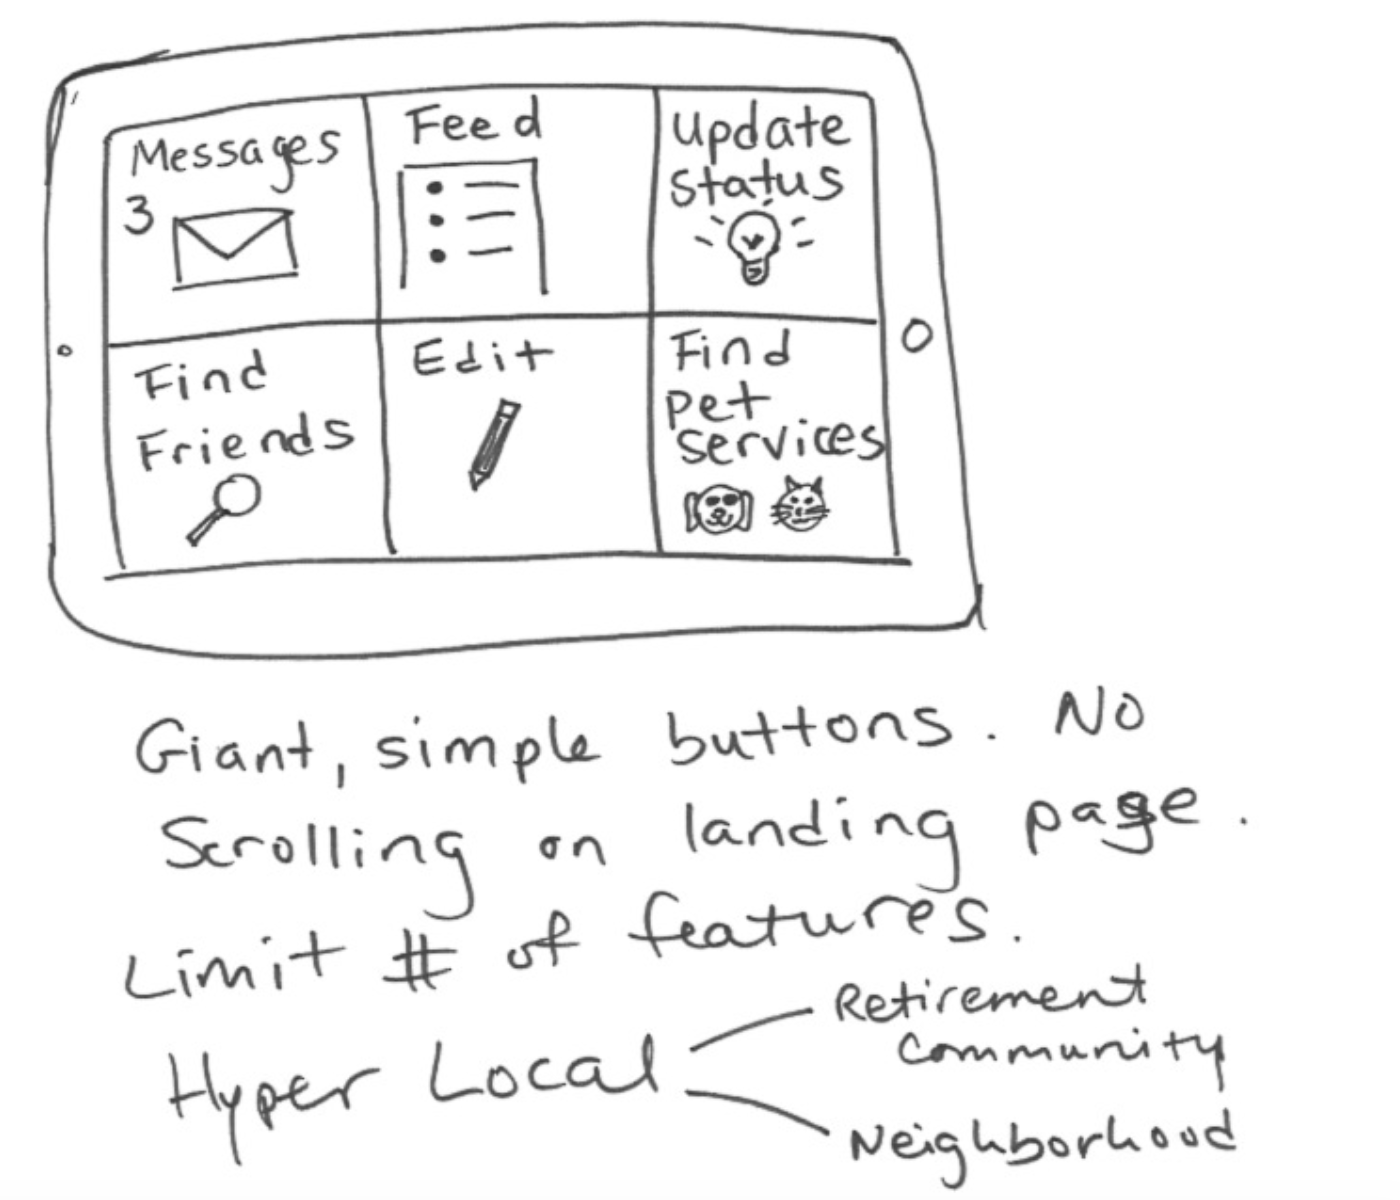 Messages
3
Feed
Update
Status
Find
Friends
Edit
Find
pet
services
Giant, simple buttons. No
Scrolling on landing page.
Limit # of features.
Hyper Local
Retirement
Community
Neighborhood